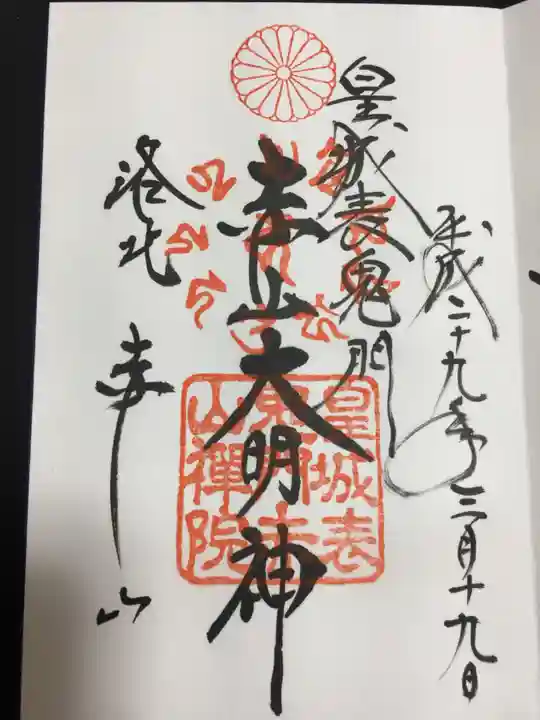 平成二十九年三月十九日
皇城表鬼門
赤山大明神
洛北 赤山
皇城表
鬼門赤
山禅院